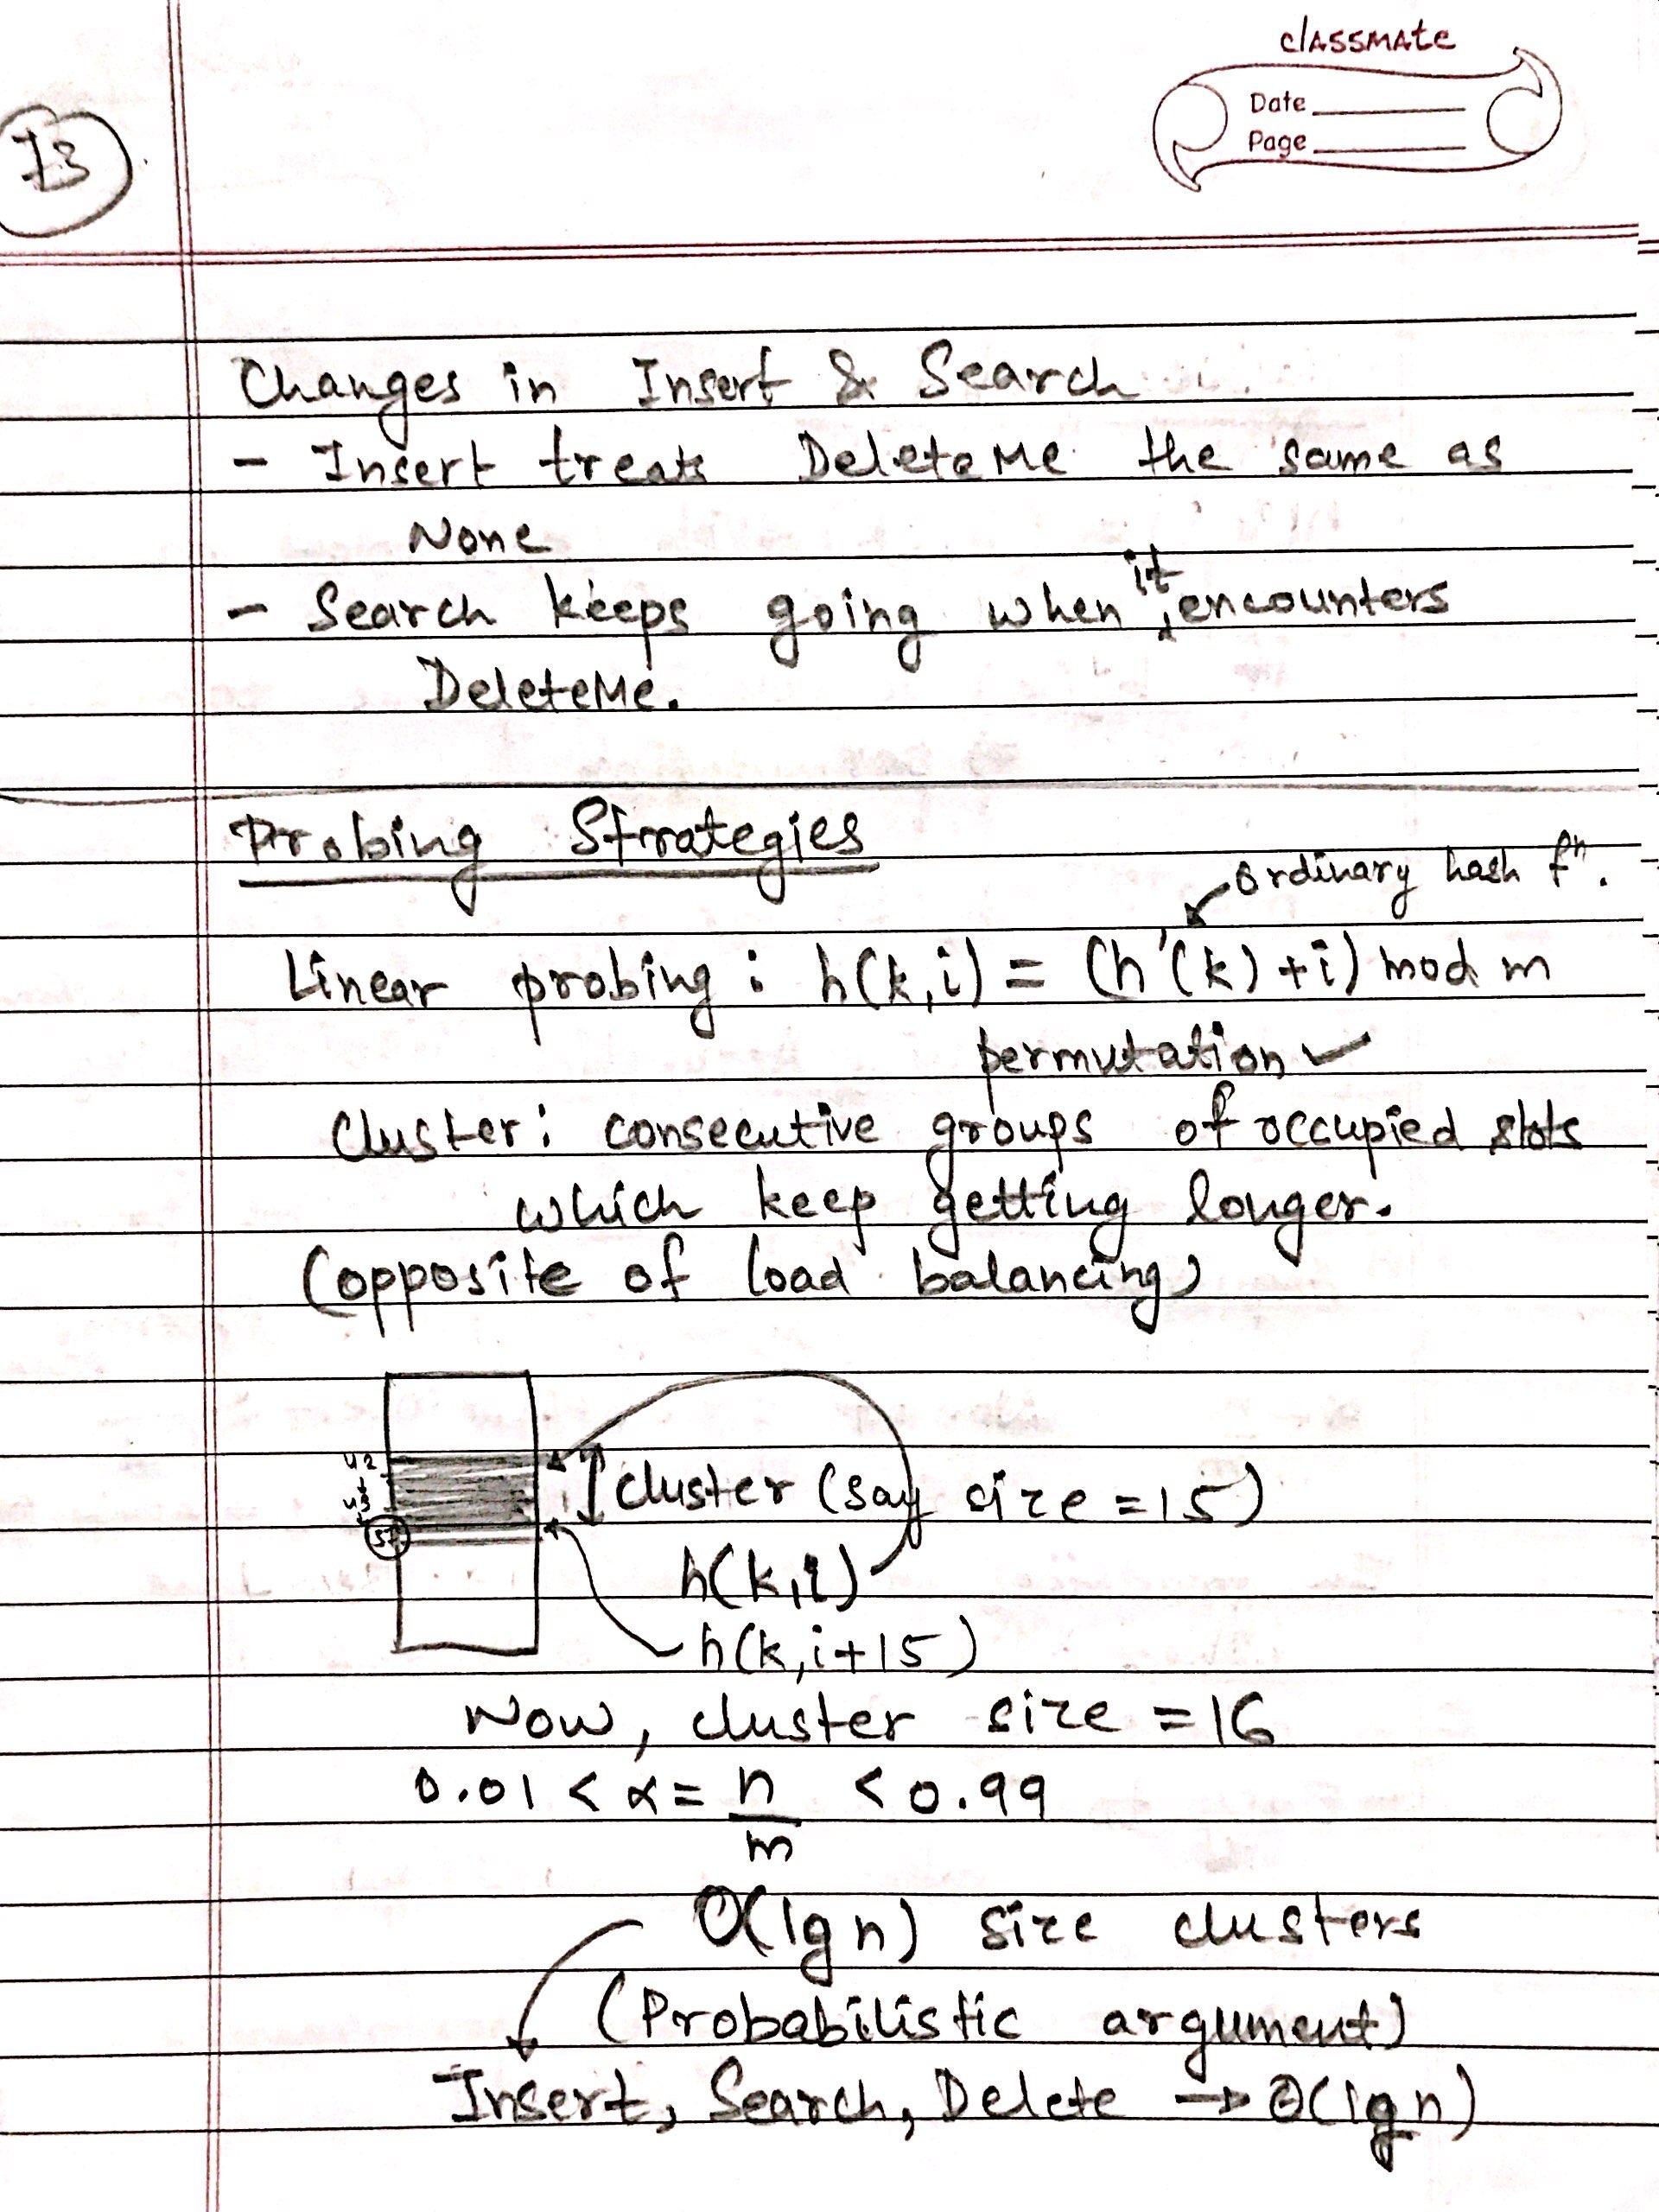 classmate
Date
Page
73
Changes in Insert & Search
- Insert treats DeleteMe the same as
None
- Search keeps going when it encounters
DeleteMe.
Probing Strategies
ordinary hash fⁿ.
Linear probing : h(k,i) = (h'(k) + i) mod m
permutation ✓
Cluster : consecutive groups of occupied slots
which keep getting longer.
(opposite of load balancing)
42
43
cluster (say size = 15)
h(k,i)
h(k,i+15)
Now, cluster size = 16
0.01 < α = n/m < 0.99
Θ(lg n) size clusters
(Probabilistic argument)
Insert, Search, Delete → Θ(lg n)